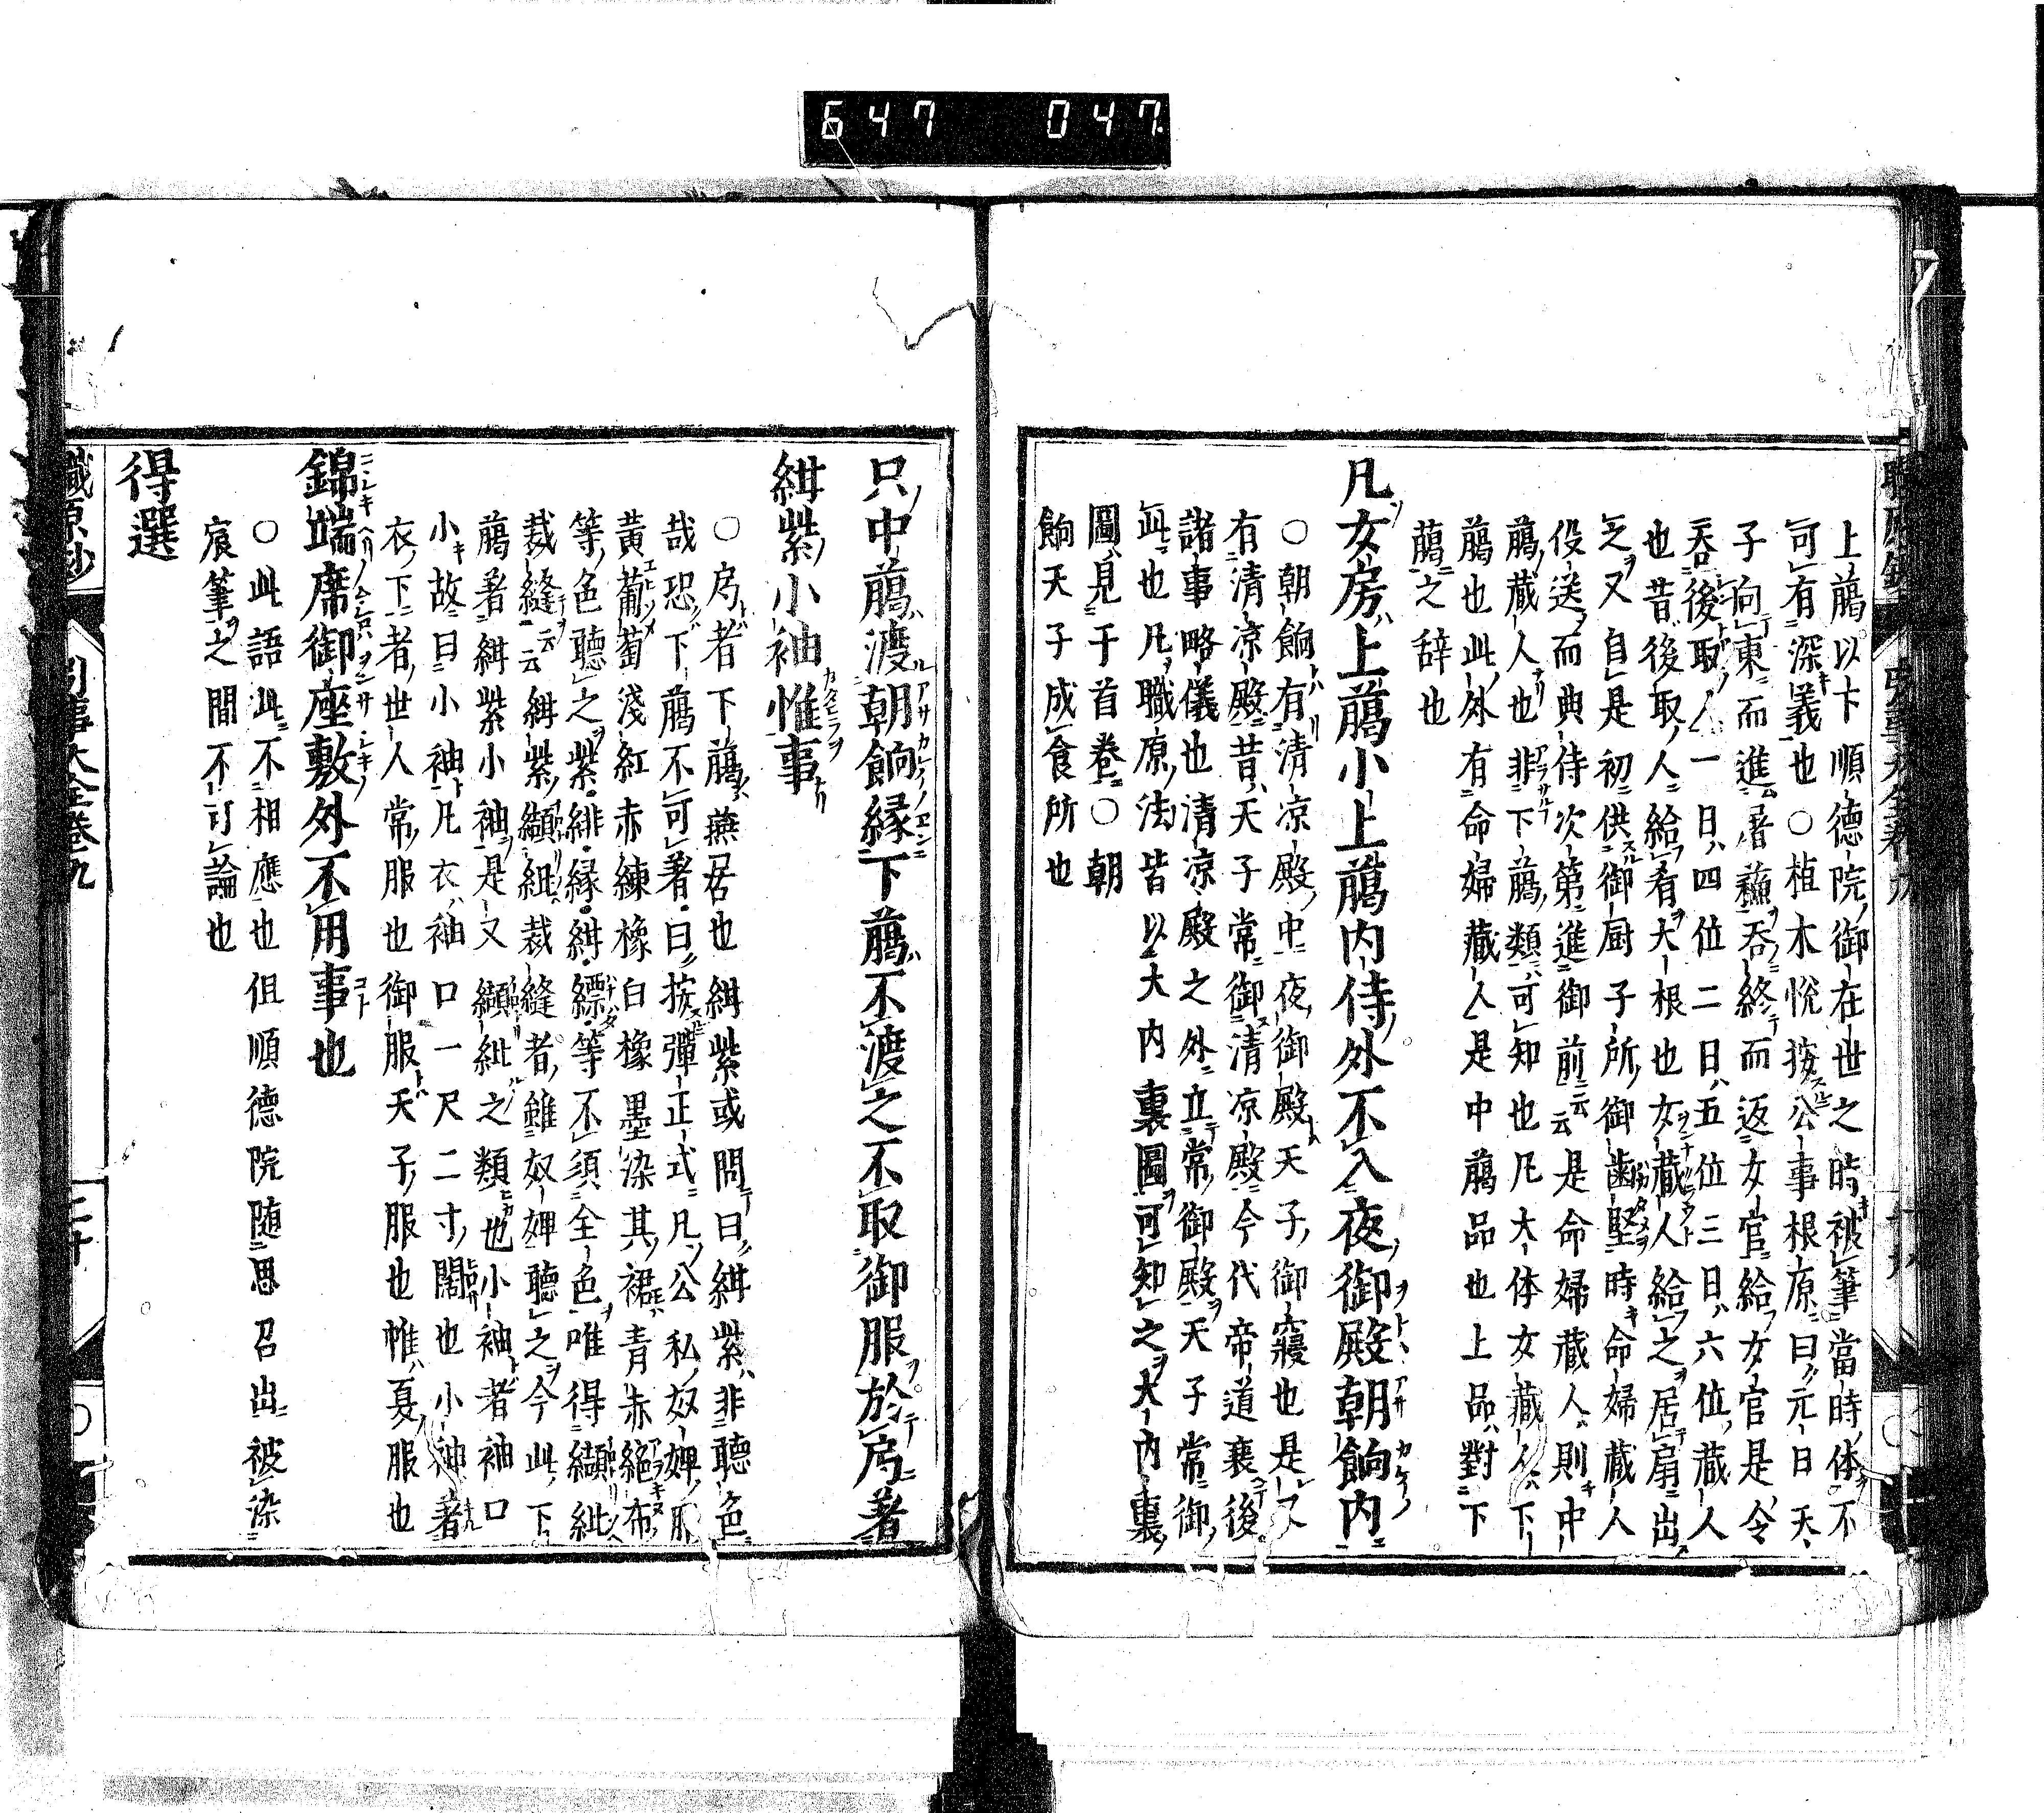 647 047
上﨟以下順德院御在世之時被筆當時体不
可有深義也○植木悅按公事根原曰元日天
子向東而進屠蘇呑終而返女官給女官是令
呑後取人一日ハ四位二日ハ五位三日ハ六位藏人
也昔後取人給肴大根也女藏人給之居扇出
之又自是初供御厨子所御歯堅時命婦藏人
役送而典侍次第進御前云云是命婦藏人則中
﨟藏人也非下﨟類可知也凡大体女藏人ハ下
﨟也此外有命婦藏人是中﨟品也上品對下
﨟之辞也
凡女房上﨟小上﨟内侍外不入夜御殿朝餉内
○朝餉有清凉殿中夜御殿天子御寢也是又
有清凉殿昔天子常御清凉殿今代帝道衰後
諸事略儀也清凉殿之外立常御殿天子常御
此也凡職原法皆以大内裏圖可知之大内裏
圖見于首卷○朝
餉天子成食所也
只中﨟渡朝餉縁下﨟不渡之不取御服於局著
絓紫小袖惟事
○局者下﨟蕪居也絓紫或問曰絓紫非聽色
哉恐下﨟不可著曰按彈正式凡公私奴婢服
黄葡萄淺紅赤練橡白橡墨染其裙青赤絁布
等色聽之紫緋縁絓縹等不須全色唯得纈紕
裁縫云云絓紫纈紕裁縫者雖奴婢聽之今此下
﨟著絓紫小袖是又纈紕之類也小袖者袖口
小故曰小袖凡衣袖口一尺二寸濶也小袖著
衣下者世人常服也御服天子服也帷夏服也
錦端席御座敷外不用事也
○此語此不相應也但順德院随思召出被染
宸筆之間不可論也
得選
職原抄 引事大全卷九 二十